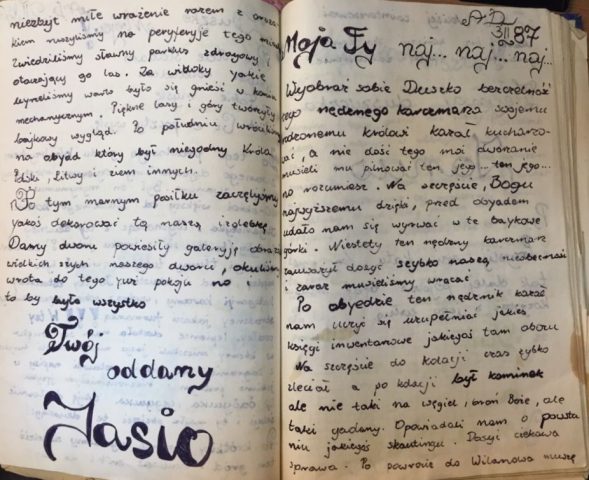 niezbyt miłe wrażenie razem z orsza-
kiem ruszyliśmy na peryferyje tego miasta
Zwiedziliśmy sławny parkus zdrojowy i
otaczający go las. Za widoky jakie
ujrzeliśmy warto było się gnieść w koniu
mechanicznym. Piękne lasy i góry tworzyły
bajkowy wygląd. Po południu wróciliśmy
na obyad który był niegodny Króla
Polski, Litwy i ziem innych.
Po tym marnym posiłku zaczęlyśmy
yakoś dekorować tą naszą izdebkę.
Damy dworu powiesiły galeryję obrazów
wielkich szych naszego dworu, okuliśmy
wrota do tego już pokoju no i
to by było wszystko
Twój
oddany
Jasio
A.D. 3 II 87
Moja Ty naj... naj... naj...
Wyobraź sobie Duszko bezczelność
tego nędznego karczmarza swojemu
rodzonemu królowi kazał kucharzo-
wać, a nie dość tego moi dworzanie
musieli mu pilnować ten jego... ten jego...
no rozumiesz. Na szczęście, Bogu
najwyższemu dzięki, przed obyadem
udało nam się wyrwać w te baykowe
górki. Niestety ten nędzny karczmarz
zauważył dosyć szybko naszą nieobecność
i zaraz musieliśmy wracać.
Po obyedzie ten nędznik kazał
nam uczyć się uzupełniać jakieś
księgi inwentarzowe jakiegoś tam obozu
Na szczęście do kolacji czas szybko
zleciał a po kolacji był kominek
ale nie taki na węgiel, broń Boże, ale
taki gadany. Opowiadali nam o powsta
niu jakiegoś skautingu. Dosyć ciekawa
sprawa. Po powrocie do Wilanowa muszę